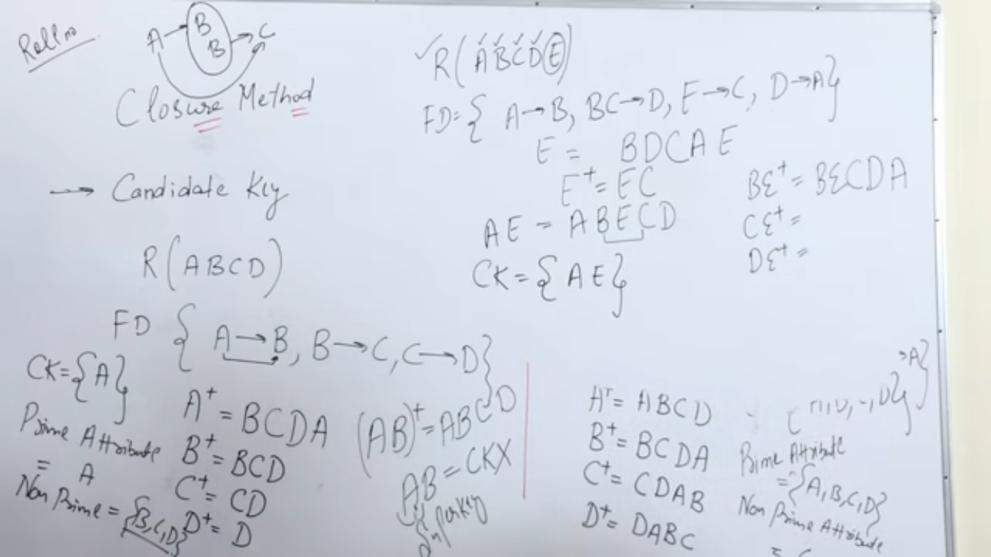 Roll no
A → B
B → C
Closure Method
→ Candidate Key
R(ABCD)
FD { A→B, B→C, C→D}
CK={A}
Prime Attribute
= A
Non Prime = {B,C,D}
A⁺ = BCDA
B⁺ = BCD
C⁺ = CD
D⁺ = D
(AB)⁺ = ABCD
AB = CKX
✓R(ABCDE)
FD={ A→B, BC→D, E→C, D→A}
E = BDCAE
E⁺ = EC
AE = ABECD
CK = {AE}
BE⁺ = BECDA
CE⁺ =
DE⁺ =
A⁺ = ABCD
B⁺ = BCDA
C⁺ = CDAB
D⁺ = DABC
→A}
Prime Attribute
= {A,B,C,D}
Non Prime Attribute
=